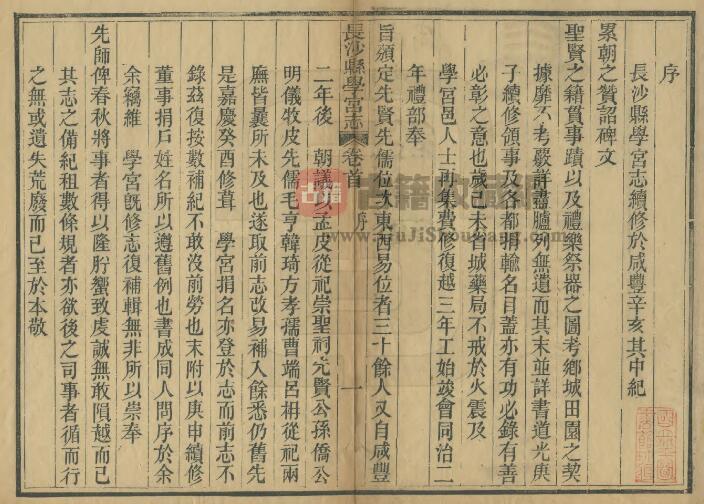 序
長沙縣學宮志續修於咸豐辛亥其中紀
累朝之贊詔碑文
聖賢之籍貫事蹟以及禮樂祭器之圖考鄉城田園之契
據靡不考覈詳盡臚列無遺而其末並詳書道光庚
子續修領事及各都捐輸名目蓋亦有功必錄有善
必彰之意也歲己未省城藥局不戒於火震及
學宮邑人士再集費修復越三年工始竣會同治二
年禮部奉
旨頒定先賢先儒位次東西易位者三十餘人又自咸豐
長沙縣學宮志 卷首 序 一
二年後 朝議以孟皮從祀崇聖祠先賢公孫僑公
明儀牧皮先儒毛亨韓琦方孝孺曹端呂柟從祀兩
廡皆曩所未及也遂取前志改易補入餘悉仍舊先
是嘉慶癸酉修葺 學宮捐名亦登於志而前志不
錄茲復按數補紀不敢沒前勞也末附以庚申續修
董事捐戶姓名所以遵舊例也書成同人問序於余
余竊維 學宮旣修志復補輯無非所以崇奉
先師俾春秋將事者得以隆肸蠁致虔誠無敢隕越而已
其志之備紀租數條規者亦欲後之司事者循而行
之無或遺失荒廢而已至於本敬
古籍
www.GuJiShouCang.com